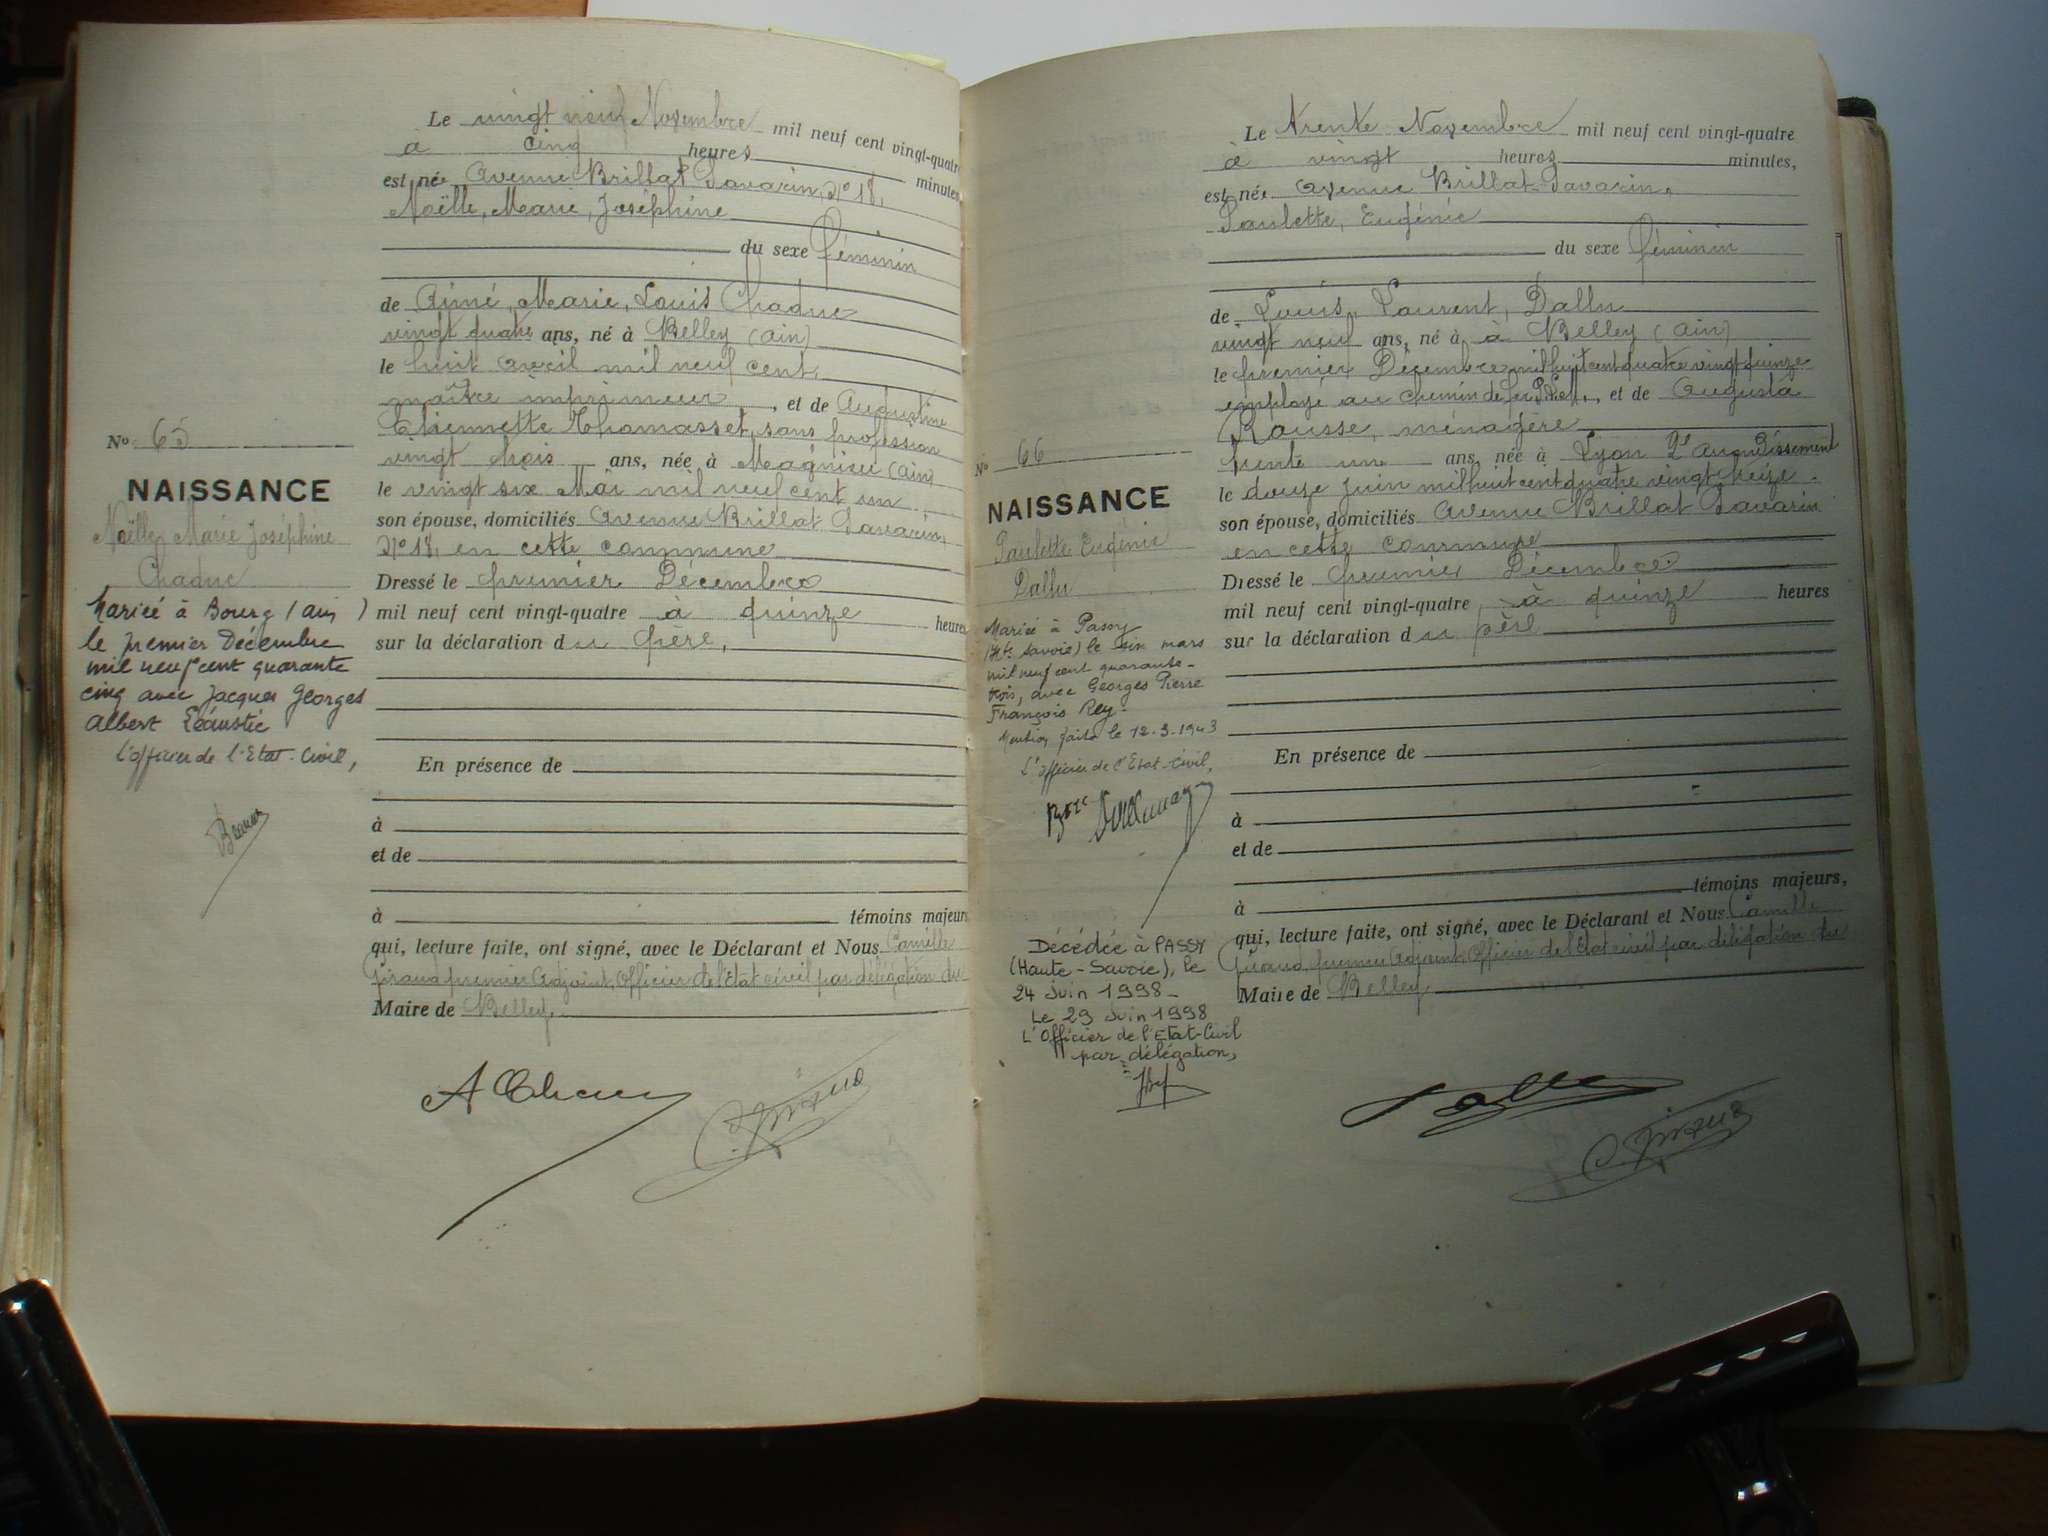 Le vingt neuf Novembre mil neuf cent vingt-quatre
à cinq heures minutes
est née avenue Brillat Savarin, N° 18,
Noëlle, Marie, Joséphine
du sexe féminin
de Aimé, Marie, Louis Chaduc
vingt quatre ans, né à Belley (ain)
le huit avril mil neuf cent,
maître imprimeur, et de Augustine
Etiennette Thomasset, sans profession
vingt trois ans, née à Magnieu (ain)
le vingt six Mai mil neuf cent un
son épouse, domiciliés avenue Brillat Savarin,
N° 18, en cette commune
Dressé le premier Décembre
mil neuf cent vingt-quatre à quinze heures
sur la déclaration du père,
En présence de
à
et de
à témoins majeurs
qui, lecture faite, ont signé, avec le Déclarant et Nous Camille
Giraud premier Adjoint, Officier de l'Etat civil par délégation du
Maire de Belley.
C. Giraud
No 65
NAISSANCE
Noëlle Marie Joséphine
Chaduc
Mariée à Bourg (ain)
le premier Décembre
mil neuf cent quarante
cinq avec Jacques Georges
Albert
L'officier de l'Etat-Civil,
Le trente Novembre mil neuf cent vingt-quatre
à vingt heures minutes,
est née avenue Brillat-Savarin,
Paulette, Eugénie
du sexe féminin
de Louis, Laurent, Dallu
vingt neuf ans, né à à Belley (ain)
le premier Décembre mil huit cent quatre vingt quinze
employé au chemin de fer P.L.M., et de Augusta
Rousse, ménagère
trente un ans, née à Lyon 2e arrondissement
le douze juin mil huit cent quatre vingt treize
son épouse, domiciliés avenue Brillat Savarin
en cette commune
Dressé le premier Décembre
mil neuf cent vingt-quatre à quinze heures
sur la déclaration du père
En présence de
à
et de
à témoins majeurs,
qui, lecture faite, ont signé, avec le Déclarant et Nous Camille
Giraud premier Adjoint, Officier de l'Etat civil par délégation du
Maire de Belley
Dallu
C. Giraud
No 66
NAISSANCE
Paulette Eugénie
Dallu
Mariée à Passy
(Hte Savoie) le six mars
mil neuf cent quarante-
trois, avec Georges Pierre
François Rey.
Mention faite le 12-3-1943
L'officier de l'Etat-Civil,
Décédée à PASSY
(Haute-Savoie), le
24 Juin 1998-
Le 29 Juin 1998
L'Officier de l'Etat-Civil
par délégation,